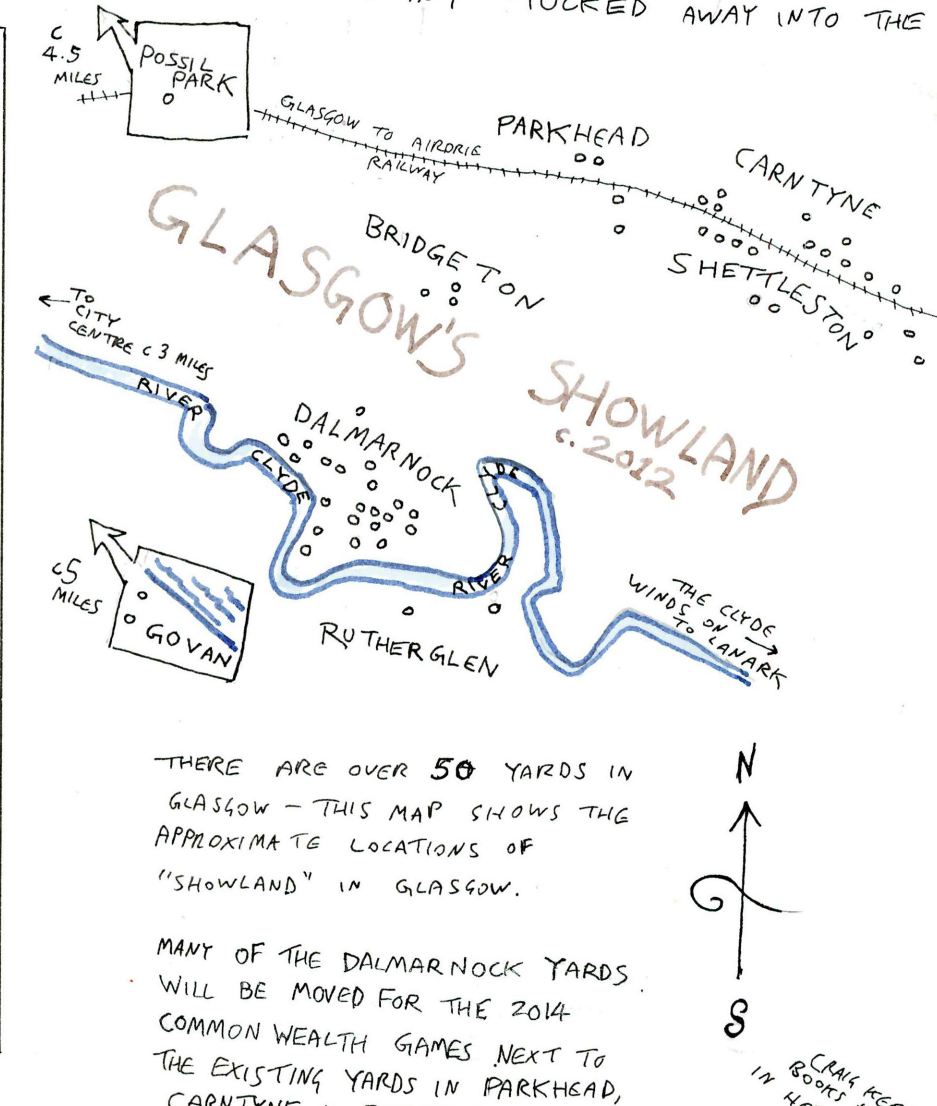 TUCKED AWAY INTO THE
C
4.5
MILES
POSSIL
PARK
GLASGOW TO AIRDRIE
RAILWAY
PARKHEAD
CARNTYNE
BRIDGETON
SHETTLESTON
GLASGOW'S SHOWLAND
c. 2012
← TO
CITY
CENTRE C 3 MILES
RIVER CLYDE
DALMARNOCK
RIVER CLYDE
c5
MILES
GOVAN
RUTHERGLEN
THE CLYDE
WINDS ON →
TO LANARK
THERE ARE OVER 50 YARDS IN
GLASGOW – THIS MAP SHOWS THE
APPROXIMATE LOCATIONS OF
"SHOWLAND" IN GLASGOW.
N
S
MANY OF THE DALMARNOCK YARDS
WILL BE MOVED FOR THE 2014
COMMONWEALTH GAMES NEXT TO
THE EXISTING YARDS IN PARKHEAD,
CARNTYNE
CRAIG
BOOKS
IN